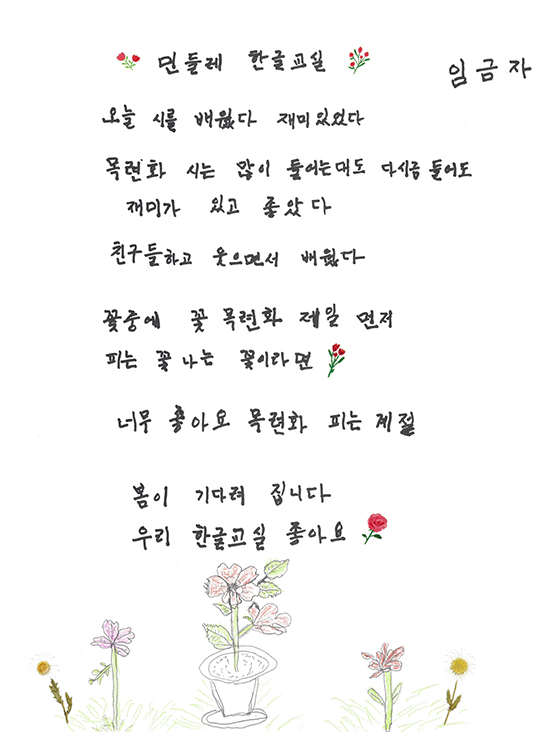 민들레 한글교실
임금자
오늘 시를 배웠다 재미있었다
목련화 시는 많이 들어는대도 다시금 들어도
재미가 있고 좋았다
친구들하고 웃으면서 배웠다
꽃중에 꽃 목련화 제일 먼저
피는 꽃 나는 꽃이라면
너무 좋아요 목련화 피는 계절
봄이 기다려 집니다
우리 한글교실 좋아요